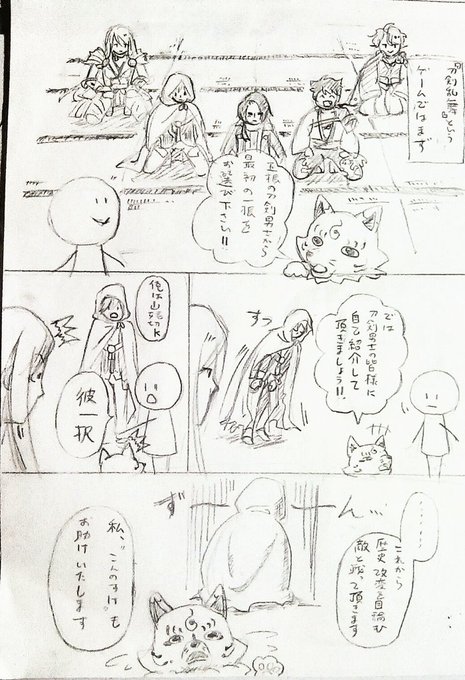 刀剣乱舞という
ゲームではまず
五振の刀剣男士から
最初の一振を
お選び下さい!!
では
刀剣男士の皆様に
自己紹介して
頂きましょう!!
すっ
俺は山姥切k
彼一択
……
これから
歴史改変を目論む
敵と戦って頂きます
ずーーん…
私、"こんのすけ"も
お助けいたします